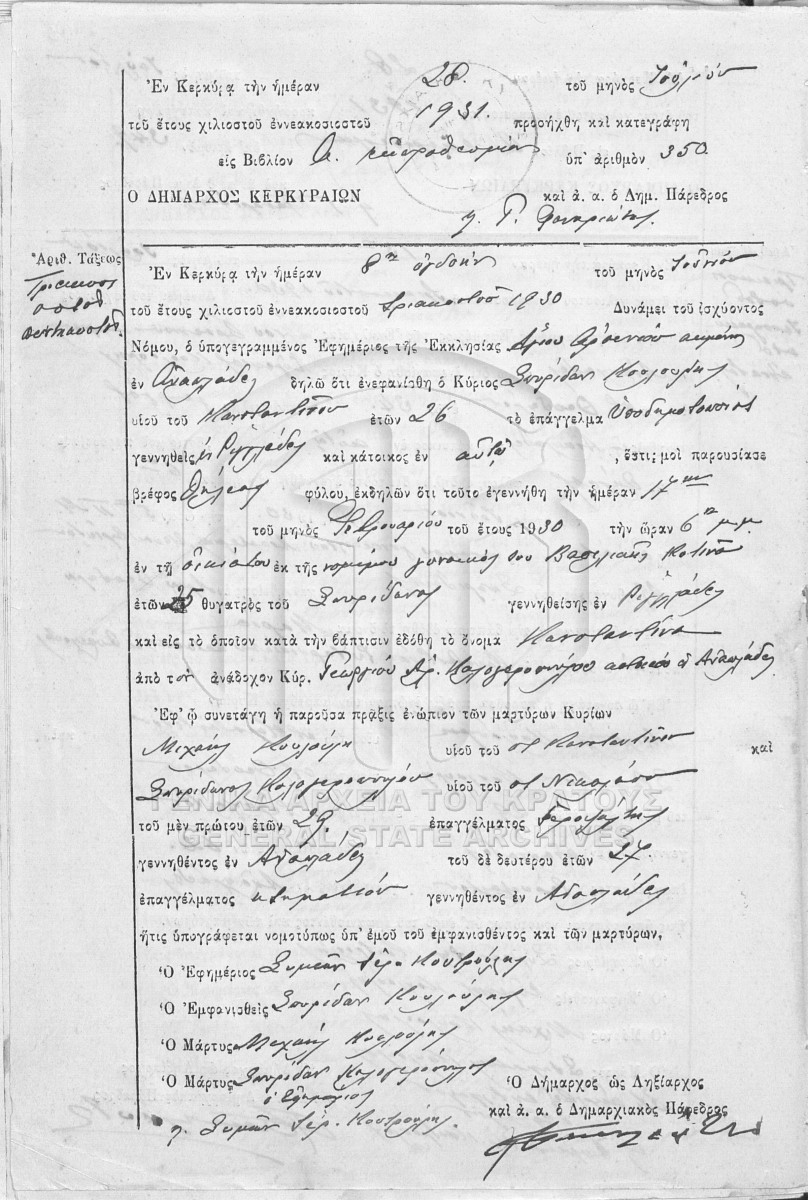 Ἐν Κερκύρᾳ τὴν ἡμέραν 28. τοῦ μηνὸς Ἰουλίου
τοῦ ἔτους χιλιοστοῦ ἐννεακοσιοστοῦ 1931. προσήχθη καὶ κατεγράφη
εἰς Βιβλίον ὑπ' ἀριθμὸν 350
Ο ΔΗΜΑΡΧΟΣ ΚΕΡΚΥΡΑΙΩΝ καὶ ἀ. α. ὁ Δημ. Πάρεδρος
Ἀριθ. Τάξεως
Ἐν Κερκύρᾳ τὴν ἡμέραν 8ην ὀγδόην τοῦ μηνὸς Ἰουνίου
τοῦ ἔτους χιλιοστοῦ ἐννεακοσιοστοῦ τριακοστοῦ 1930 Δυνάμει τοῦ ἰσχύοντος
Νόμου, ὁ ὑπογεγραμμένος Ἐφημέριος τῆς Ἐκκλησίας Ἁγίου Ἀρσενίου
ἐν Ἀναπλάδες δηλῶ ὅτι ἐνεφανίσθη ὁ Κύριος Σπυρίδων Κουλούρης
υἱοῦ τοῦ Κωνσταντίνου ἐτῶν 26 τὸ ἐπάγγελμα Ὑποδηματοποιός
γεννηθεὶς καὶ κάτοικος ἐν αὐτῷ , ὅστις μοὶ παρουσίασε
βρέφος θήλεος φύλου, ἐκδηλῶν ὅτι τοῦτο ἐγεννήθη τὴν ἡμέραν 17ην
τοῦ μηνὸς Φεβρουαρίου τοῦ ἔτους 1930 τὴν ὥραν 6ην μ.μ.
ἐν τῇ οἰκίᾳ του ἐκ τῆς νομίμου γυναικός του Βασιλικῆς
ἐτῶν 25 θυγατρὸς τοῦ Σπυρίδωνος γεννηθείσης ἐν
καὶ εἰς τὸ ὁποῖον κατὰ τὴν βάπτισιν ἐδόθη τὸ ὄνομα Κωνσταντίνα
ἀπὸ τὸν ἀνάδοχον Κύρ. Γεωργίου Ἀρ. Καλογερόπουλου
Ἐφ' ᾧ συνετάγη ἡ παροῦσα πρᾶξις ἐνώπιον τῶν μαρτύρων Κυρίων
Μιχαὴλ Κουλούρη υἱοῦ τοῦ Κωνσταντίνου καὶ
Σπυρίδωνος Καλογεροπούλου υἱοῦ τοῦ Νικολάου
ΓΕΝΙΚΑ ΑΡΧΕΙΑ ΤΟΥ ΚΡΑΤΟΥΣ
τοῦ μὲν πρώτου ἐτῶν 29. ἐπαγγέλματος
GENERAL STATE ARCHIVES
γεννηθέντος ἐν Ἀναπλάδες τοῦ δὲ δευτέρου ἐτῶν 27.
ἐπαγγέλματος κτηματίου γεννηθέντος ἐν Ἀναπλάδες
ἥτις ὑπογράφεται νομοτύπως ὑπ' ἐμοῦ τοῦ ἐμφανισθέντος καὶ τῶν μαρτύρων,
Ὁ Ἐφημέριος Συμεὼν Ἱερ. Κουτρούλης
Ὁ Ἐμφανισθεὶς Σπυρίδων Κουλούρης
Ὁ Μάρτυς Μιχαὴλ Κουλούρης
Ὁ Μάρτυς Σπυρίδων Καλογερόπουλος
ὁ Ἐφημέριος
Συμεὼν Ἱερ. Κουτρούλης.
Ὁ Δήμαρχος ὡς Ληξίαρχος
καὶ ἀ. α. ὁ Δημαρχιακὸς Πάρεδρος